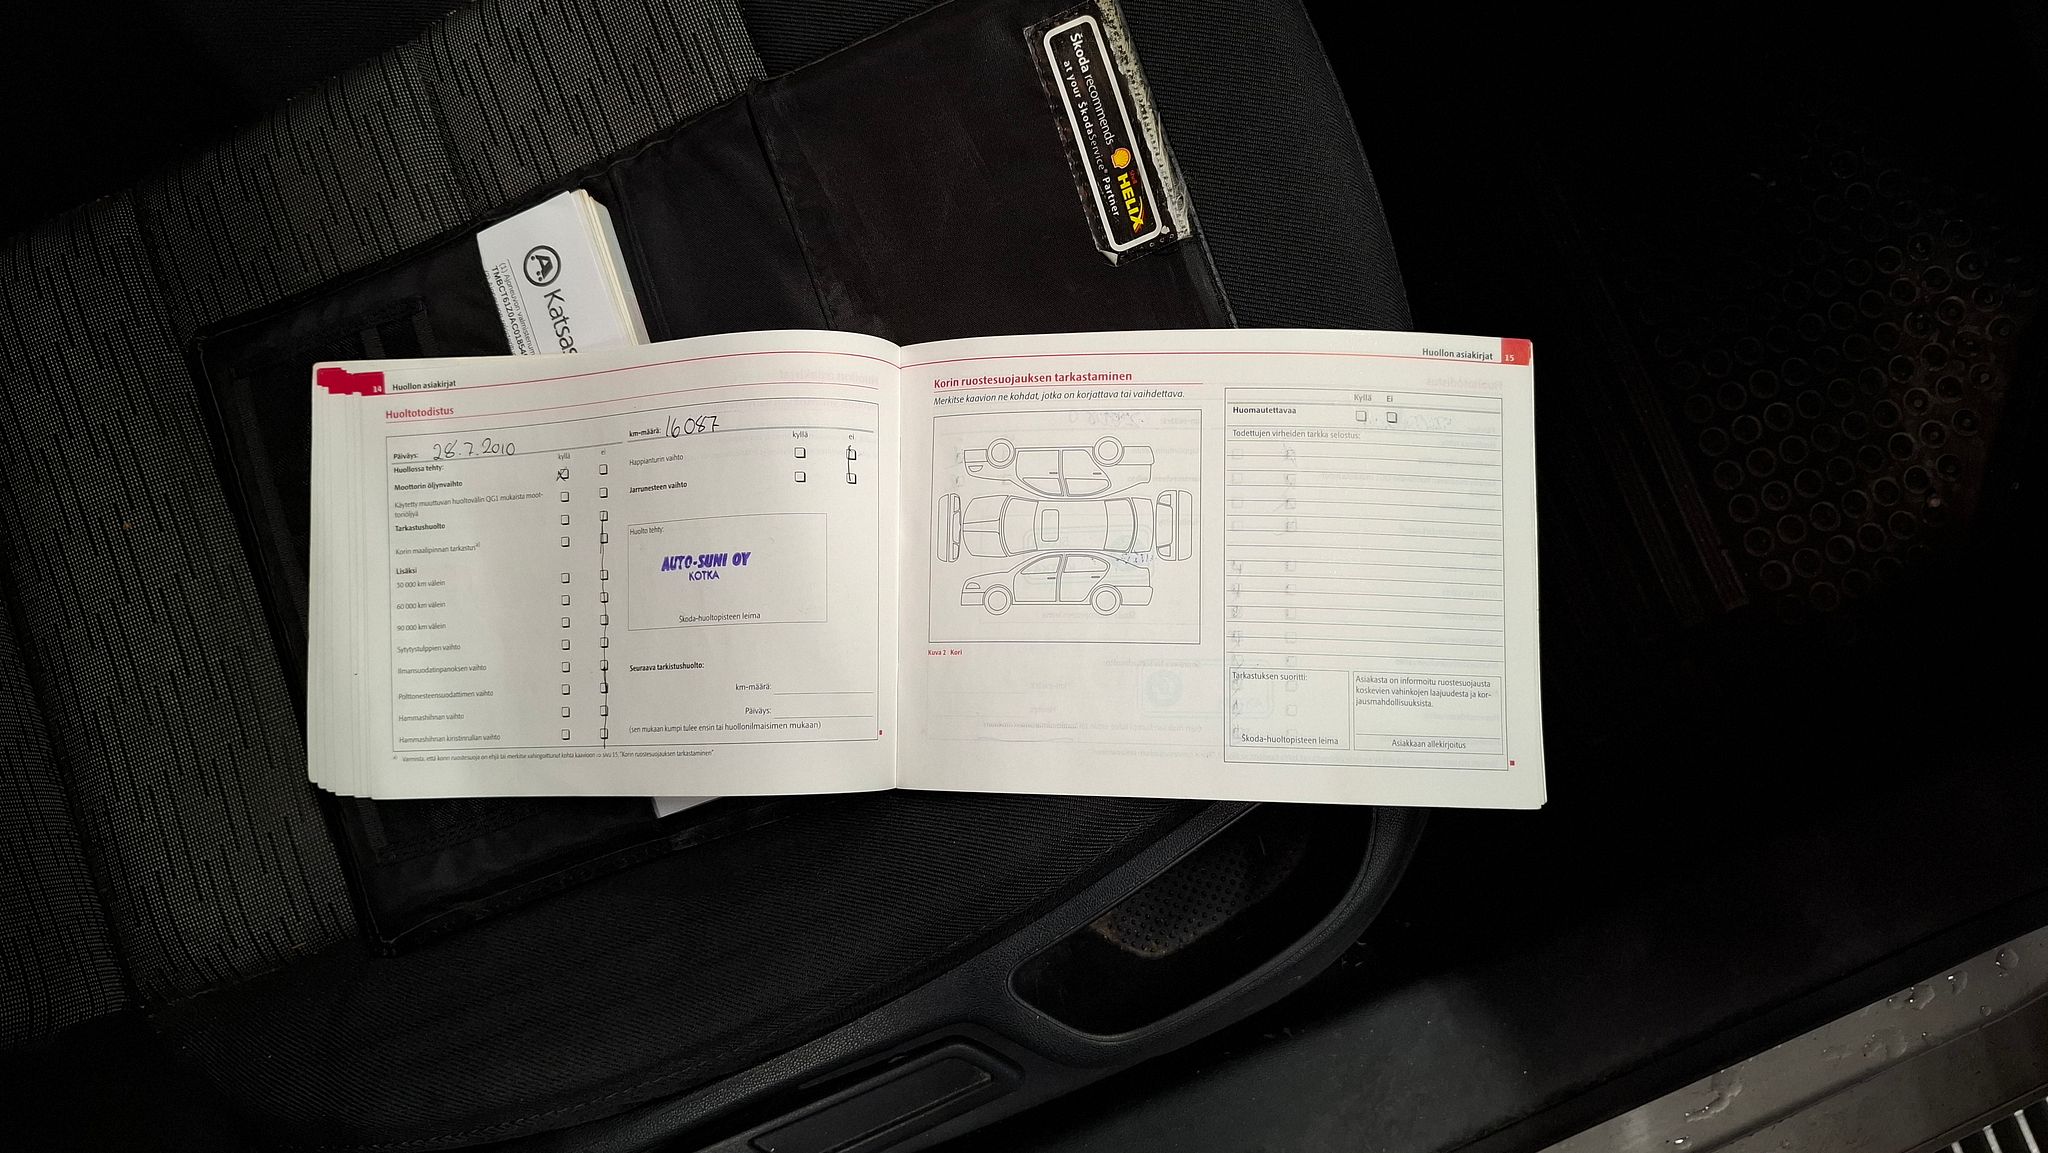 Škoda recommends
at your ŠkodaService® Partner
HELIX
Katsas
(1) Ajoneuvon valmistenum
14 Huollon asiakirjat
Huoltotodistus
Päiväys: 28.7.2010
kyllä ei
Huollossa tehty:
Moottorin öljynvaihto
Käytetty muuttuvan huoltovälin QG1 mukaista moot-
toriöljyä
Tarkastushuolto
Korin maalipinnan tarkastus a)
Lisäksi
30 000 km välein
60 000 km välein
90 000 km välein
Sytytystulppien vaihto
Ilmansuodatinpanoksen vaihto
Polttonesteensuodattimen vaihto
Hammashihnan vaihto
Hammashihnan kiristinrullan vaihto
km-määrä: 16087
kyllä ei
Happianturin vaihto
Jarrunesteen vaihto
Huolto tehty:
AUTO-SUNI OY
KOTKA
Škoda-huoltopisteen leima
Seuraava tarkistushuolto:
km-määrä:
Päiväys:
(sen mukaan kumpi tulee ensin tai huollonilmaisimen mukaan)
a) Varmista, että korin ruostesuoja on ehjä tai merkitse vahingoittunut kohta kaavioon ⇒ sivu 15, "Korin ruostesuojauksen tarkastaminen"
Huollon asiakirjat 15
Korin ruostesuojauksen tarkastaminen
Merkitse kaavion ne kohdat, jotka on korjattava tai vaihdettava.
Kuva 2 Kori
Kyllä Ei
Huomautettavaa
Todettujen virheiden tarkka selostus:
Tarkastuksen suoritti:
Škoda-huoltopisteen leima
Asiakasta on informoitu ruostesuojausta
koskevien vahinkojen laajuudesta ja kor-
jausmahdollisuuksista.
Asiakkaan allekirjoitus